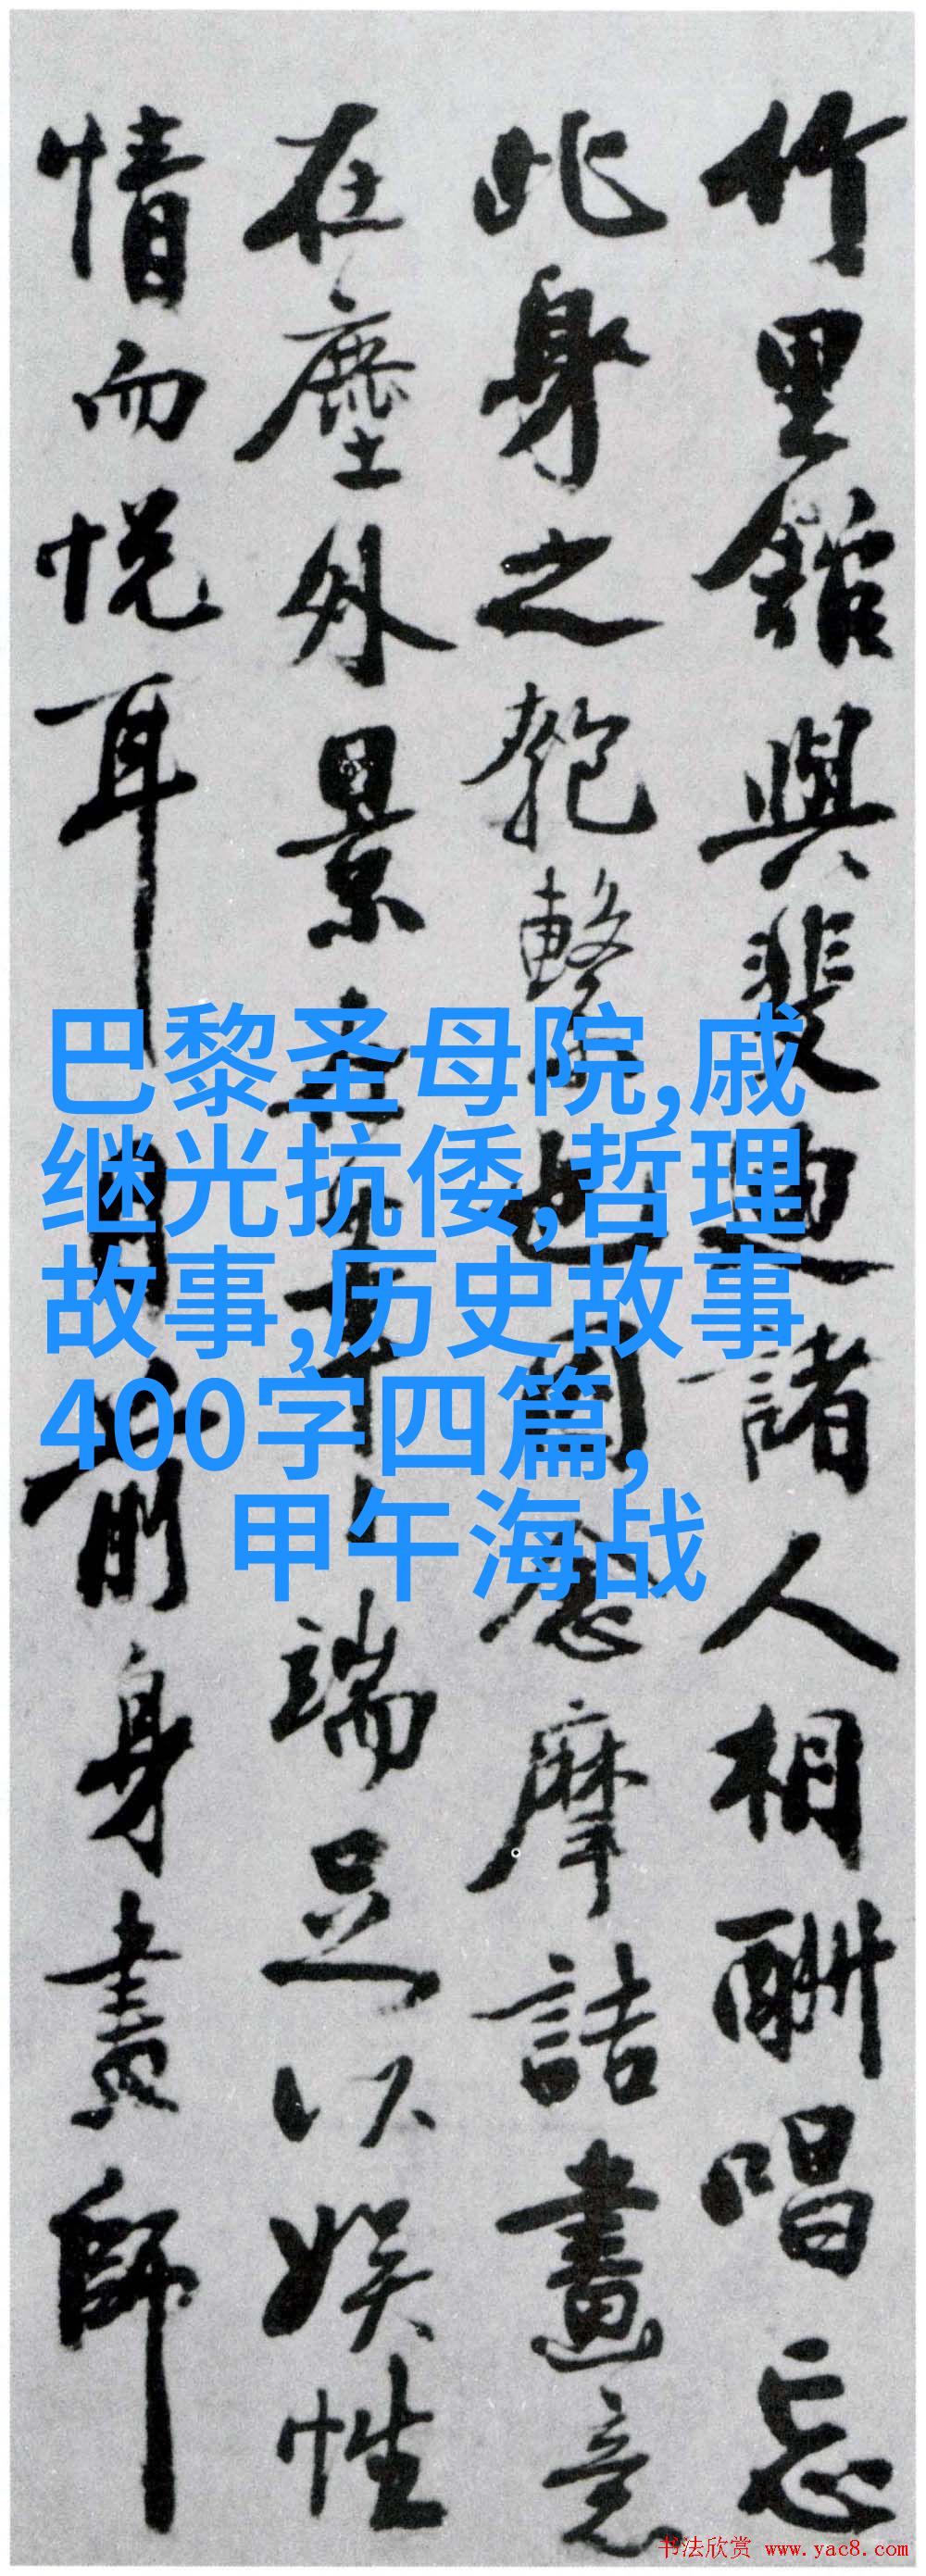 竹里館與裴迪諸人相酬唱忘
此身之匏繫也因念摩詰畫意
在塵外景筆端足以娛性
情而悅耳目前身畫師
巴黎圣母院,戚
继光抗倭,哲理
故事,历史故事
400字四篇,
甲午海战
书法欣赏 www.yac8.com